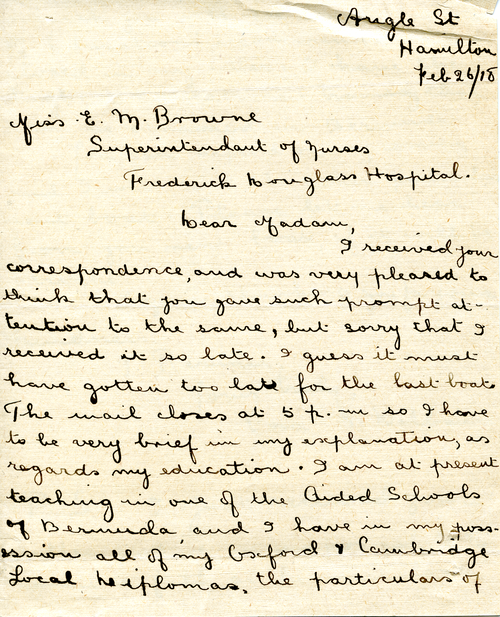 Angle St
Hamilton
Feb 26/18
Miss E. M. Browne
Superintendant of Nurses
Frederick Douglass Hospital.
Dear Madam,
I received your
correspondence, and was very pleased to
think that you gave such prompt at-
tention to the same, but sorry that I
received it so late. I guess it must
have gotten too late for the last boat
The mail closes at 5 p.m so I have
to be very brief in my explanation, as
regards my education. I am at present
teaching in one of the Aided Schools
of Bermuda, and I have in my poss-
ession all of my Oxford & Cambridge
Local Diplomas, the particulars of